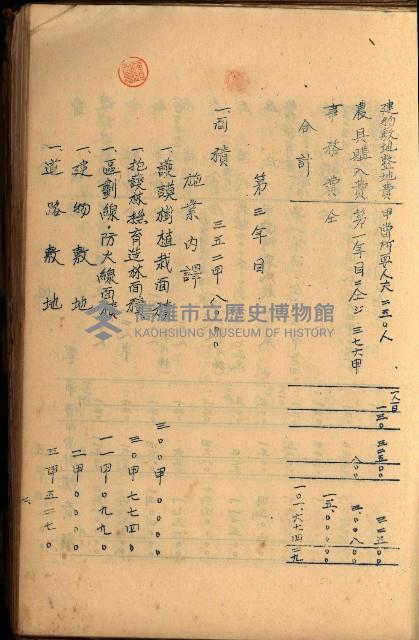 建物敷地整地費 甲當所要人夫二五〇人
農具購入費 第一年目ニ仝ジ 三七六甲
事務費 仝
合計
第三年目
施業內譯
一、面積 三五二甲八〇〇〇
一、護謨樹植栽面積 三〇〇甲〇〇〇〇
一、抱護林撫育造林面積 三〇甲七七四〇
一、區劃線、防火線面積 一一甲〇九九〇
一、建物敷地 二甲〇〇〇〇
一、道路敷地 三甲五二七〇
高雄市立歷史博物館
KAOHSIUNG MUSEUM OF HISTORY